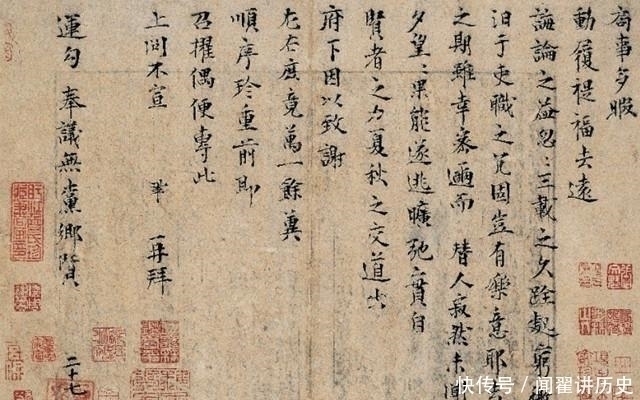 局事多暇
動履禔福去遠
誨論之益忽〻三載之久跧處窮
汩于吏職之冗固豈有樂意耶
之期雖幸密邇而替人寂然未
夕望〻果能遂逃曠弛實自
賢者之力夏秋之交道出
府下因以致謝
左右庶竟萬一餘冀
順序珍重前即
召擢偶便專此
上問不宣 鞏 再拜
運勾奉議無黨鄉賢 二十七
快传号 / 闻翟讲历史